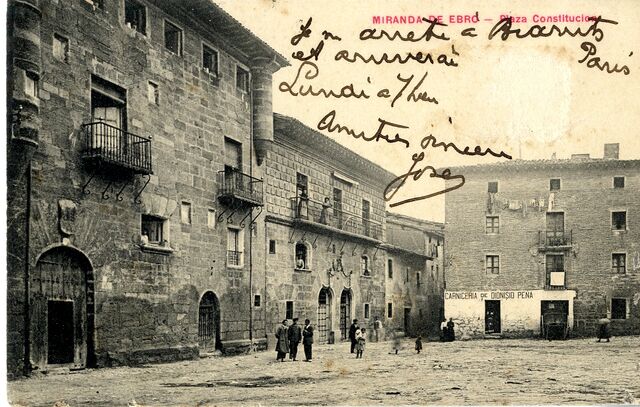 MIRANDA DE EBRO – Plaza Constitución
Je m'arrete à Biarritz
et arriverai Paris
Lundi à 7h
Amitiés
José
CARNICERIA DE DIONISIO PENA